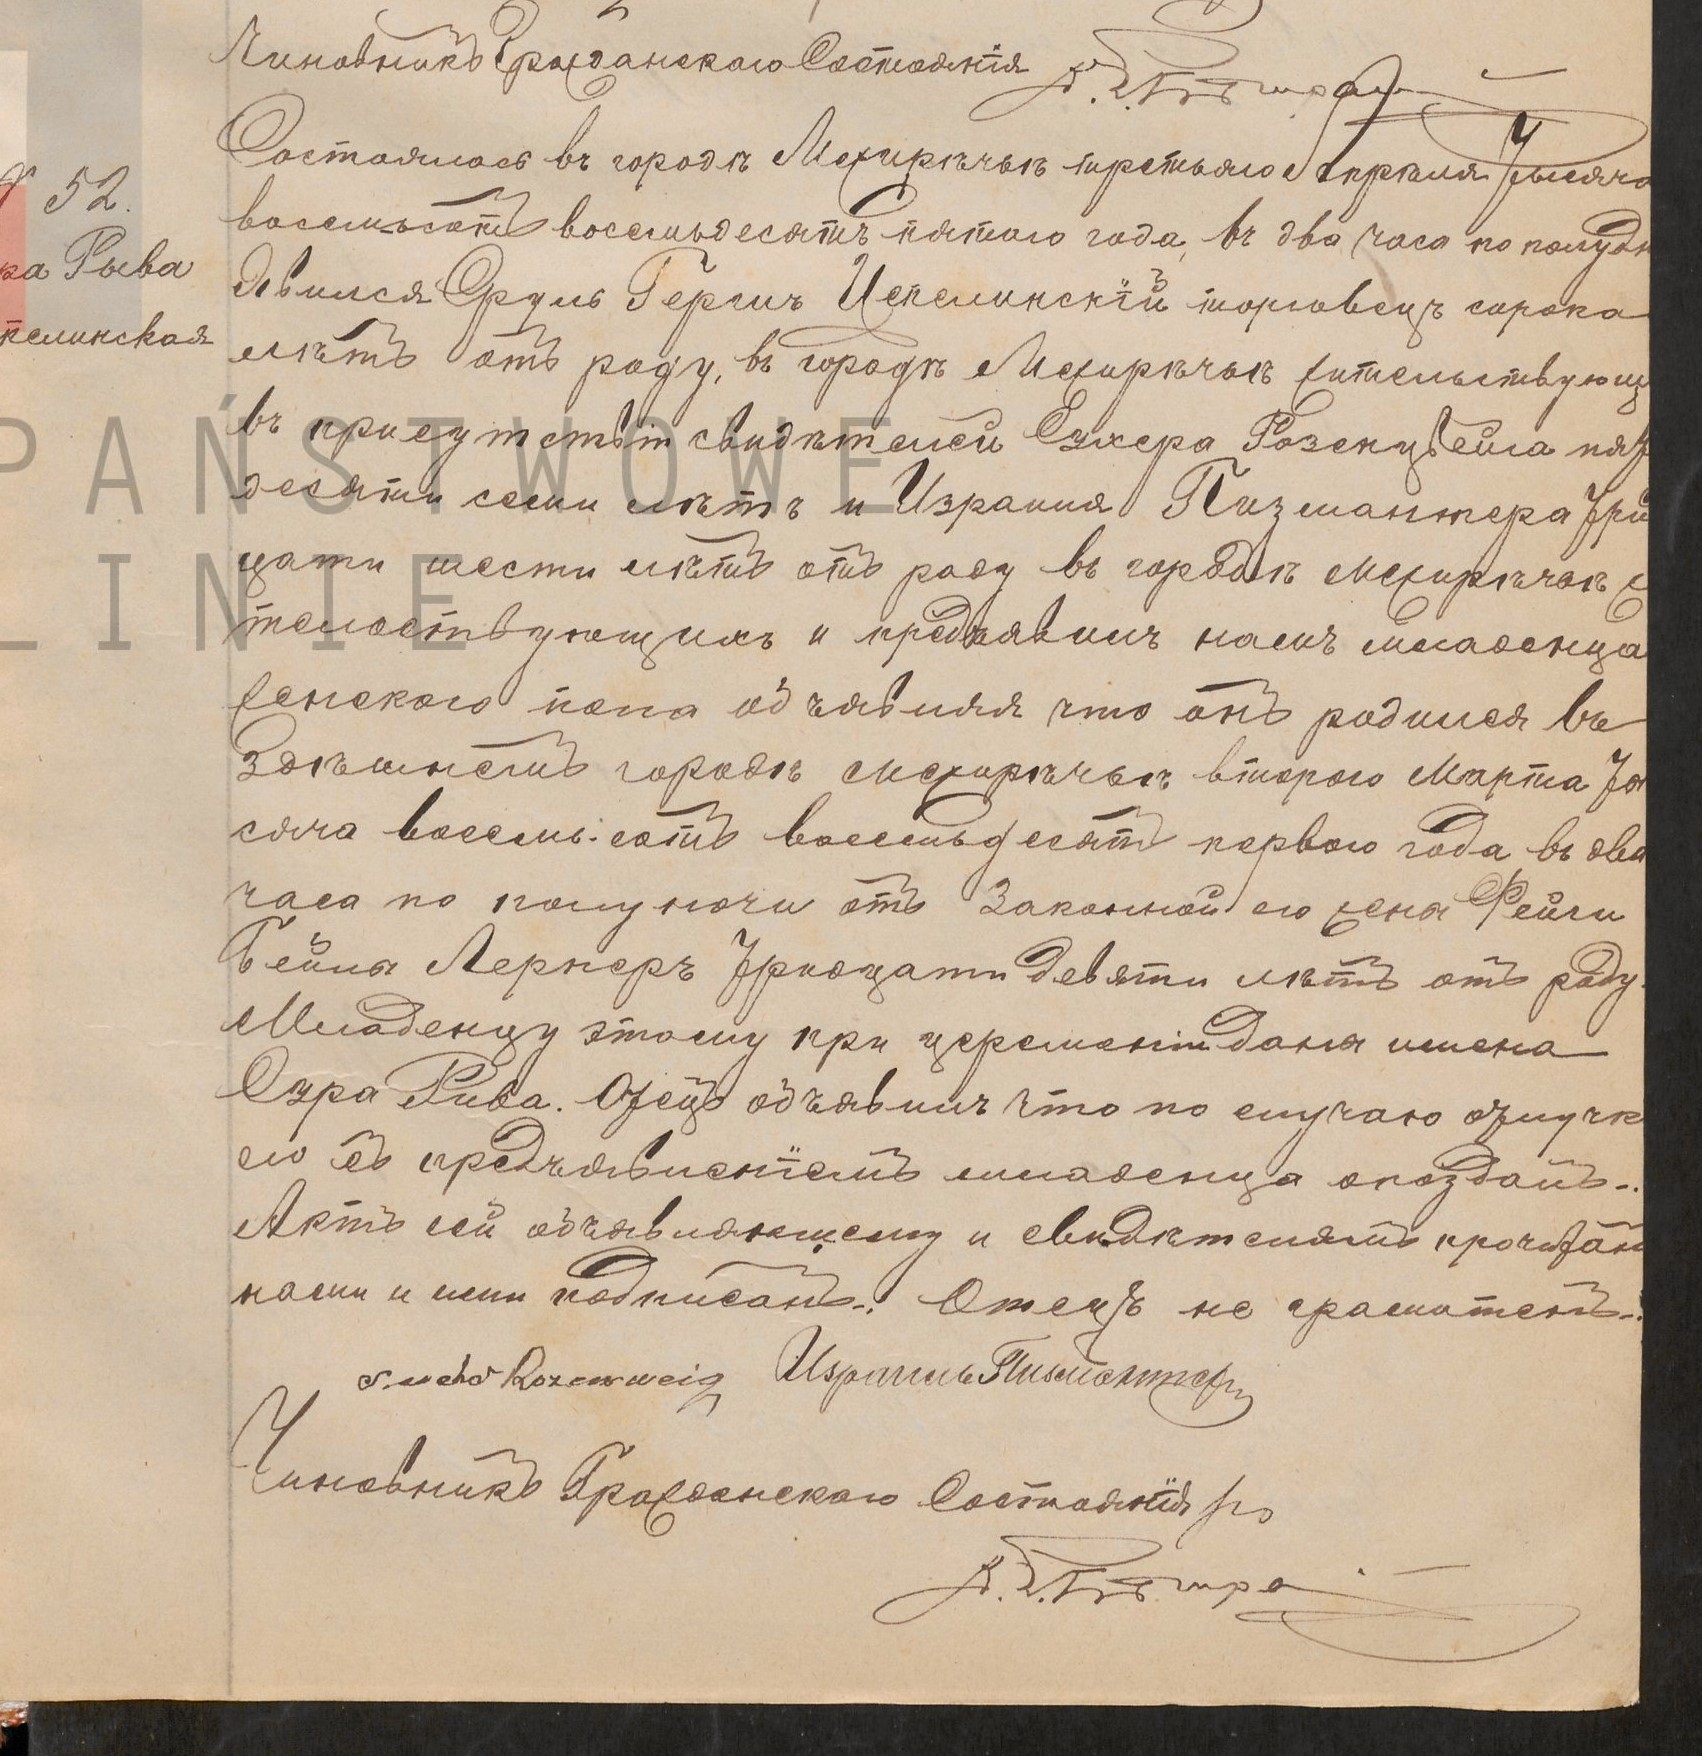 Чиновникъ Гражданскаго Состоянія
№ 52.
ра Рыва
келинская
Состоялось въ городѣ Межирѣчьѣ третьяго Апрѣля Тысяча
восемьсотъ восемьдесятъ пятаго года, въ два часа по полудн
Явился Сруль Гершъ Цекелинскій торговецъ сорока
лѣтъ отъ роду, въ городѣ Межирѣчьѣ жительствующ
въ присутствіи свидѣтелей Сухера Розенцвейга пят
десяти семи лѣтъ и Израиля Пизмантера три
цати шести лѣтъ отъ роду въ городѣ Межирѣчьѣ ж
тельствующихъ и предъявилъ намъ младенца
женскаго пола объявляя что онъ родился въ
Здѣшнемъ городѣ Межирѣчьѣ втораго Марта Ты
сяча восемь-сотъ восемьдесятъ перваго года въ два
часа по полуночи отъ Законной его жены Фейги
Бейлы Лернеръ Тридцати девяти лѣтъ отъ роду.
Младенцу этому при церемоніи даны имена
Сура Рива. Отецъ объявилъ что по случаю отлучк
его съ предъявленіемъ младенца опоздалъ.
Актъ сей объявляющему и свидѣтелямъ прочитан
нами и ими подписанъ. Отецъ не грамотенъ.
Rozenzweig Израиль Пизмантеръ
Чиновникъ Гражданскаго Состоянія
PAŃSTWOWE
LINIE